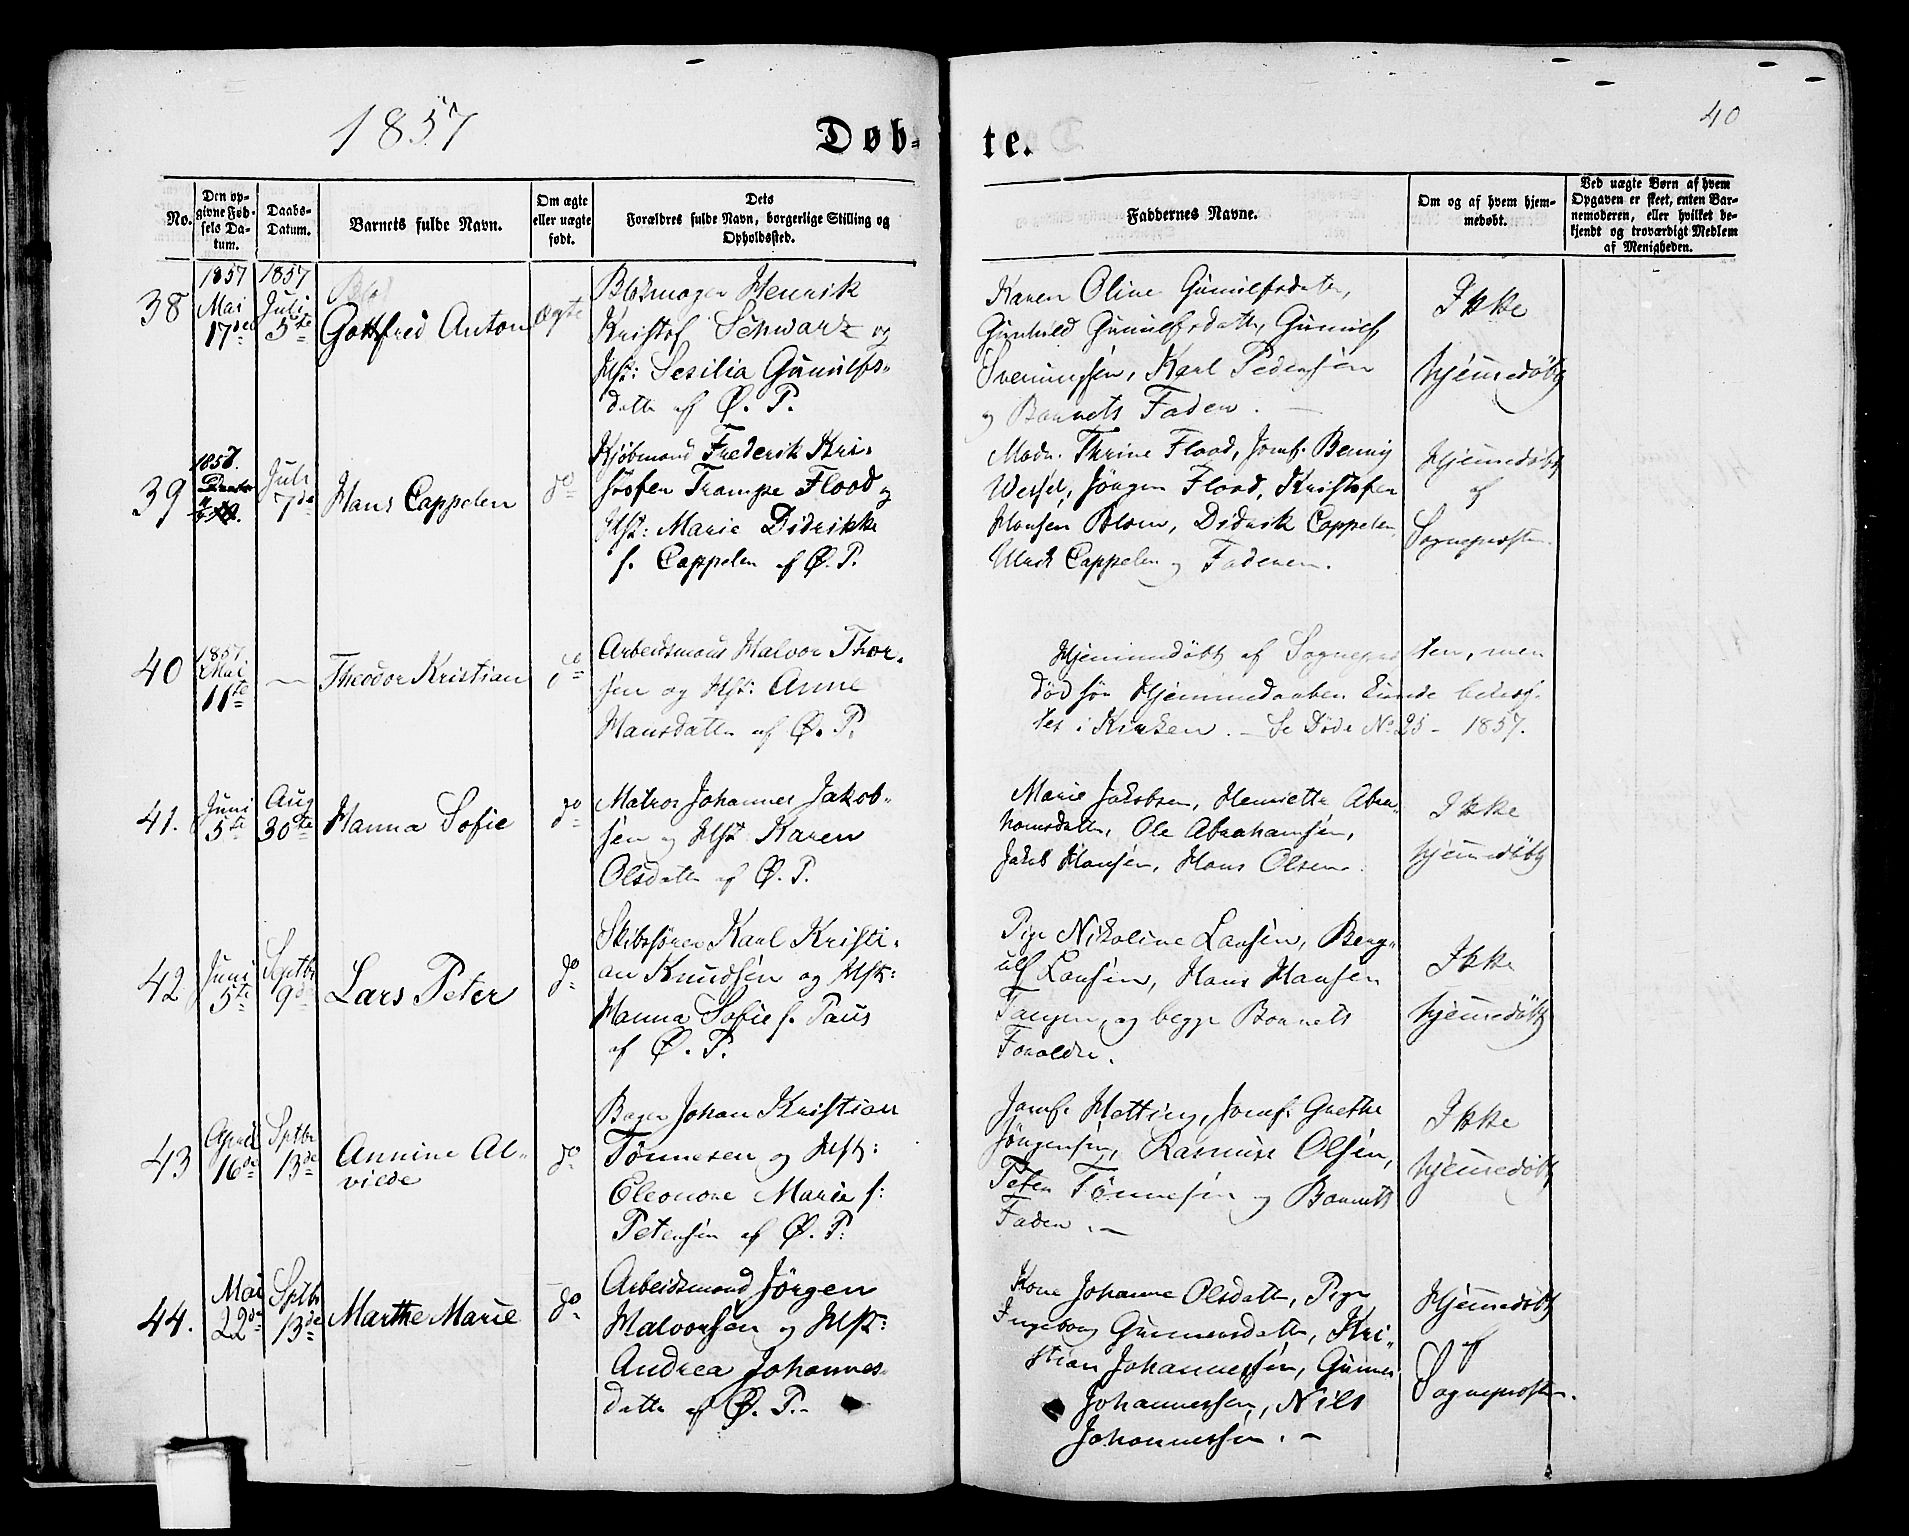 1857
Døb-
te.
40
No.
Den op-
givne Fød-
sels Da-
tum.
Daabs-
Datum.
Barnets fulde Navn.
Om ægte
eller uægte
født.
Dets
Forældres fulde Navn, borgerlige Stilling og
Opholdssted.
Faddernes Navne.
Om og af hvem hjem-
medøbt.
Ved uægte Børn af hvem
Opgaven er skeet, enten Bar-
nemoderen, eller hvilket be-
kjendt og troværdigt Medlem
af Menigheden.
38
1857
Mai
17de
1857
Juli
5te
Gottfred Anton
Ægte
Henrik
Kristof Schwarz og
Hst: Sesilia Gunulfs-
datte af Ø. P.
Karen Oline Gunulfsdatter,
Gunhild Gunulfsdatte, Gunulf
Sveningsen, Karl Pedersen
og Barnets Fader. —
Ikke
hjemmedøbt
39
1857.
Juli
7de
Hans Cappelen
do
Kjøbmand Frederik Kri-
stofer Trampe Flood og
Hst: Marie Didrikke
f. Cappelen af Ø. P.
Mad. Thrine Flood, Jomf. Benny
Wessel, Jörgen Flood, Kristofer
Hansen Blom, Diderik Cappelen
Ulrik Cappelen og Faderen.
Hjemmedøbt
af
Sognepresten.
40
1857
Mai
11te
—
Theodor Kristian
do
Arbeidsmand Halvor Thor-
sen og Hst: Anne
Hansdatter af Ø. P.
Hjemmedøbt af Sognepresten, men
död før Hjemmedaaben kunde bekræf-
tes i Kirken. — Se Døde No 25 - 1857.
41.
Juni
5te
Aug
30te
Hanna Sofie
do
Matros Johannes Jakob-
sen og Hst Karen
Olsdatte af Ø. P.
Marie Jakobsen, Henriette Abra-
hamsdatter, Ole Abrahamsen,
Jakob Hansen, Hans Olsen.
Ikke
hjemmedøbt
42
Juni
5te
Septbr
9de
Lars Peter
do
Skibsfører Karl Kristi-
an Knudsen og Hst:
Hanna Sofie f. Paus
af Ø. P.
Pige Nikoline Larsen, Berg-
ulf Larsen, Hans Hansen
Tangen, og begge Barnets
Foraldre.
Ikke
hjemmedøbt
43
April
16de
Sptbr
13de
Annine Al-
viede
do
Bager Johan Kristian
Tönnesen og Hst:
Eleonore Marie f:
Petersen af Ø. P:
Jomf. Hotting, Jomf. Grethe
Jörgensen, Rasmus Olsen,
Peter Tönnesen og Barnets
Fader. —
Ikke
hjemmedøbt
44.
Mai
22de
Sptbr
13de
Marthe Marie
do
Arbeidsmand Jörgen
Halvorsen og Hst:
Andrea Johannes-
datte af Ø. P.-
Kone Johanne Olsdatter, Pige
Ingeborg Gunnersdatte, Kri-
stian Johannessen, Gunner
Johannessen, Nils
Johannessen. —
Hjemmedøbt
af
Sognepresten.